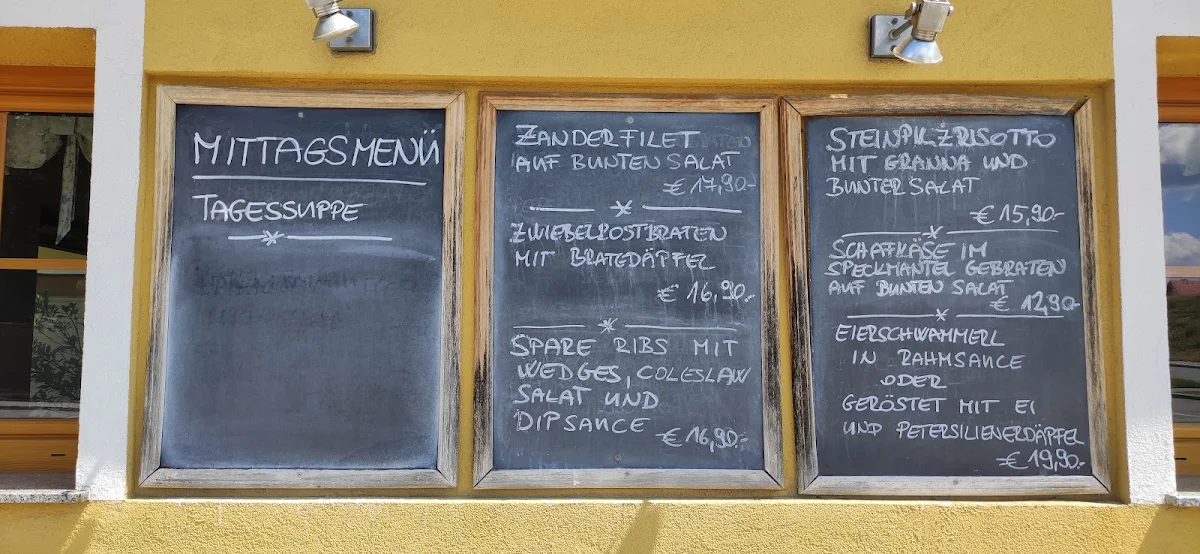 MITTAGSMENÜ
TAGESSUPPE
ZANDERFILET
AUF BUNTEN SALAT
€ 17,90-
ZWIEBELROSTBRATEN
MIT BRATEDÄPFEL
€ 16,90.-
SPARE RIBS MIT
WEDGES, COLESLAW
SALAT UND
DIPSAUCE
€ 16,90.-
STEINPILZRISOTTO
MIT GRANNA UND
BUNTER SALAT
€ 15,90.-
SCHAFKÄSE IM
SPECKMANTEL GEBRATEN
AUF BUNTEN SALAT
€ 12,90-
EIERSCHWAMMERL
IN RAHMSAUCE
ODER
GERÖSTET MIT EI
UND PETERSILIENERDÄPFEL
€ 19,90.-